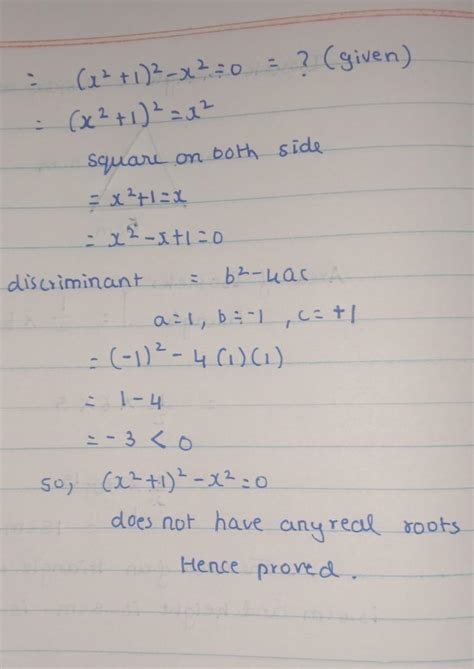 = (x² + 1)² - x² = 0 = ? (given)
= (x² + 1)² = x²
square on both side
= x² + 1 = x
= x² - x + 1 = 0
discriminant = b² - 4ac
a = 1, b = -1, c = +1
= (-1)² - 4 (1) (1)
= 1 - 4
= - 3 < 0
so, (x² + 1)² - x² = 0
does not have any real roots
Hence proved.